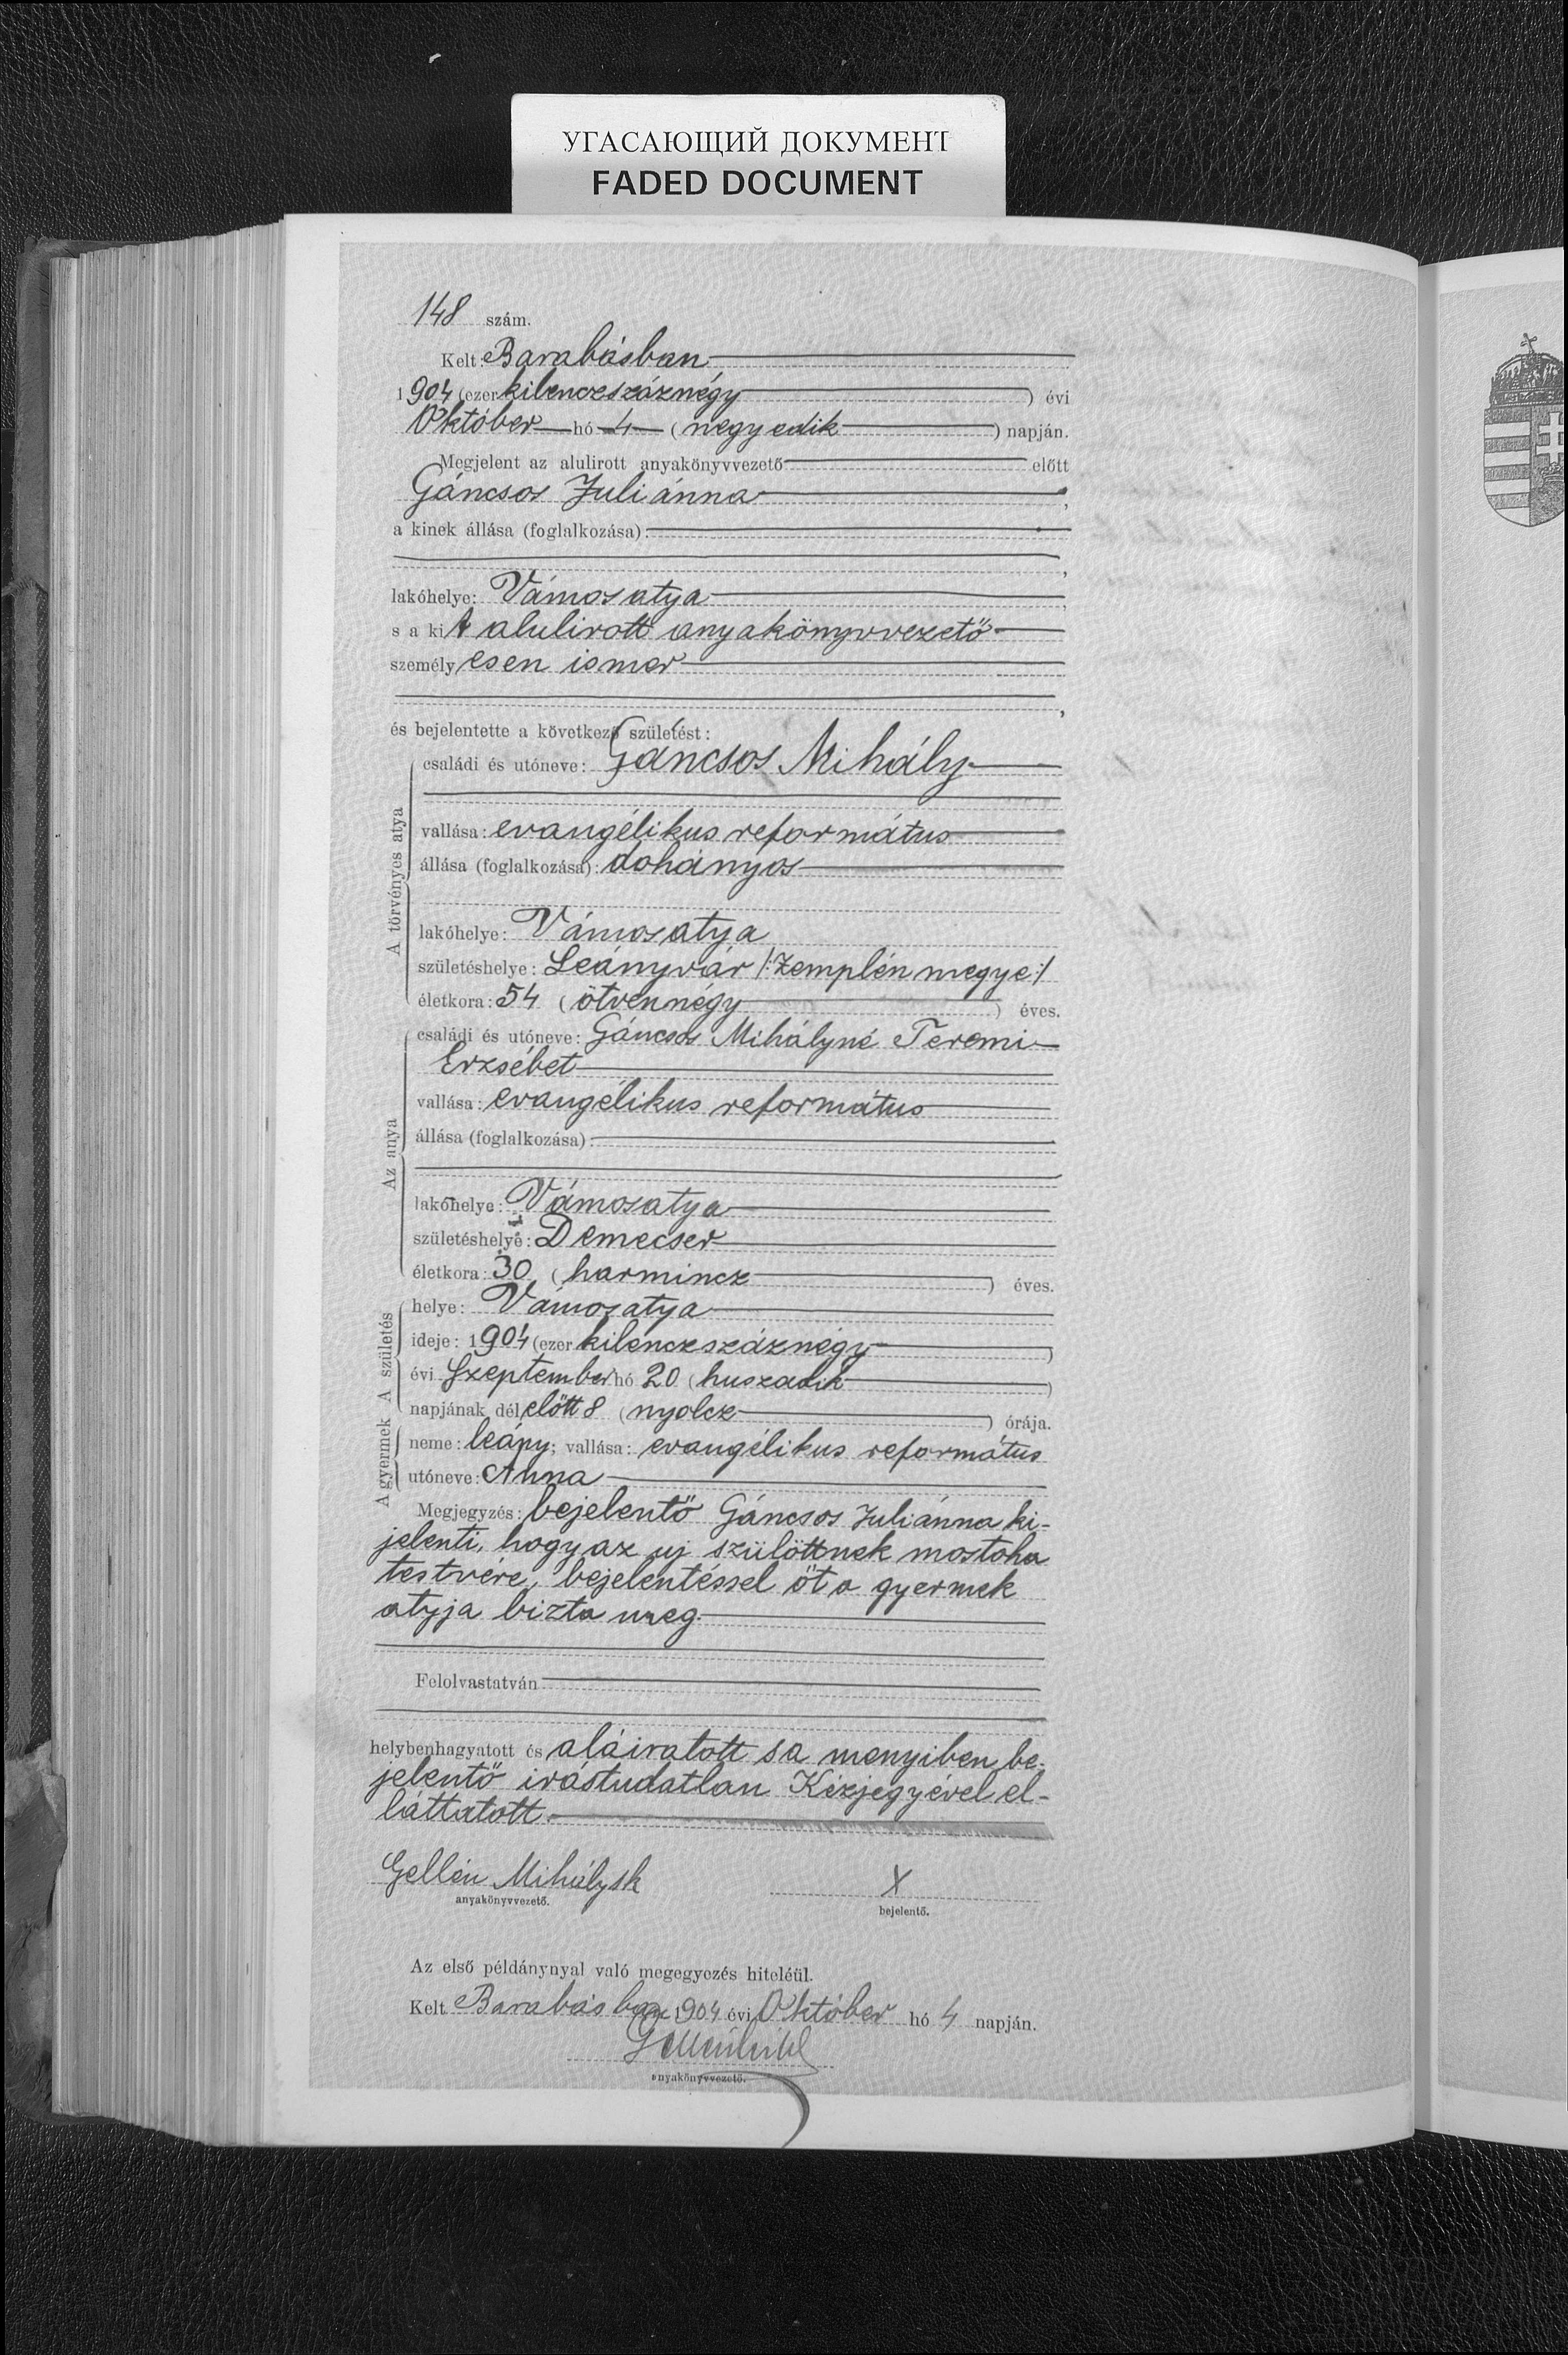 УГАСАЮЩИЙ ДОКУМЕНТ
FADED DOCUMENT
148 szám.
Kelt: Barabásban
1904 (ezer kilenczszáznégy) évi
Október hó 4 (negyedik) napján.
Megjelent az alulirott anyakönyvvezető előtt
Gáncsos Juliánna,
a kinek állása (foglalkozása):
,
lakóhelye: Vámosatya,
s a kit alulirott anyakönyvvezető
személyesen ismer
,
és bejelentette a következő születést:
A törvényes atya
családi és utóneve: Gáncsos Mihály
vallása: evangélikus református
állása (foglalkozása): dohányos
lakóhelye: Vámosatya
születéshelye: Leányvár /: Zemplén megye :/
életkora: 54 (ötvennégy) éves.
Az anya
családi és utóneve: Gáncsos Mihályné Teremi
Erzsébet
vallása: evangélikus református
állása (foglalkozása):
lakóhelye: Vámosatya
születéshelye: Demecser
életkora: 30 (harmincz) éves.
A születés
helye: Vámosatya
ideje: 1904 (ezer kilenczszáznégy)
évi Szeptember hó 20 (huszadik)
napjának délelőtt 8 (nyolcz) órája.
A gyermek
neme: leány; vallása: evangélikus református
utóneve: Anna
Megjegyzés: bejelentő Gáncsos Juliánna ki-
jelenti, hogy az uj szülöttnek mostoha
testvére, bejelentéssel őt a gyermek
atyja bizta meg.
Felolvastatván
helybenhagyatott és aláiratott s a menyiben be-
jelentő irástudatlan Kézjegyével el-
láttatott.
Gellén Mihály sk X
anyakönyvvezető. bejelentő.
Az első példánynyal való megegyezés hiteléül.
Kelt Barabásban 1904 évi Október hó 4 napján.
anyakönyvvezető.